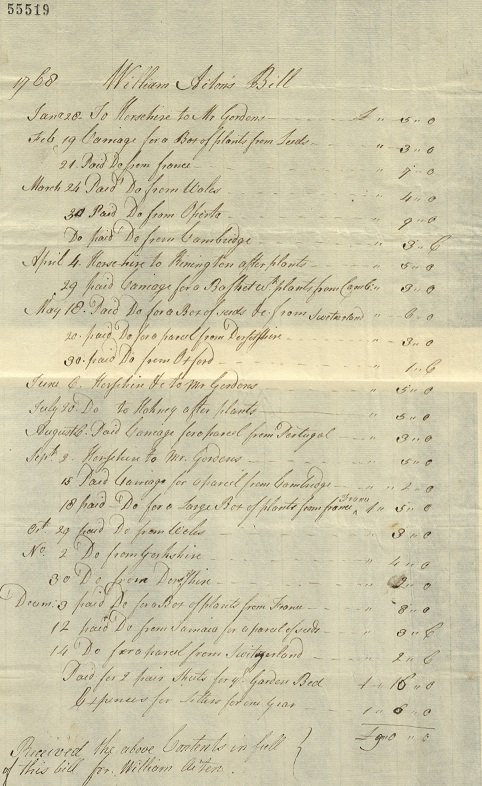 55519
1768 William Aiton's Bill
Jany 28. To Horsehire to Mr Gordons £ " 5 " 0
Feb. 19 Carriage for a Box of plants from Leeds " 3 " 0
21. Paid Do from france " 7 " 0
March 24 Paid Do from Wales " 4 " 0
30 Paid Do from Oporto " 9 " 0
Do paid Do from Cambridge " 3 " 6
April 4. Horse hire to Kennington after plants " 5 " 0
29 paid Carriage for a Basket wth plants from Camb: " 3 " 0
May 18. Paid Do for a Box of seeds &c from Switzerland " 6 " 0
20. paid Do for a parcel from Dorsetshire " 3 " 0
30. paid Do from Oxford " 1 " 6
June 6. Horsehire &c to Mr Gordons " 5 " 0
July 10. Do to Hakney after plants " 5 " 0
August 6. Paid Carriage for a parcel from Portugal " 3 " 0
Sept. 2. Horsehire to Mr. Gordons " 5 " 0
15 Paid Carriage for a parcel from Cambridge " 2 " 0
18 paid Do for a Large Box of plants from france 1 " 5 " 0
Oct. 29 paid Do from Wales " 3 " 0
No. 2 Do from Yorkshire " 4 " 0
30 Do from Dorsetshire " 2 " 0
Decem: 3 paid Do for a Box of plants from France " 8 " 0
12 paid Do from Jamaica for a parcel of seeds " 3 " 6
14 Do for a parcel from Switzerland " 2 " 6
Paid for 2 pair for ye. Garden Bed 1 " 16 " 0
Expences for Letters for one Year 1 " 6 " 0
£9 " 0 " 0
Received the above Contents in full
of this bill for William Aiton.